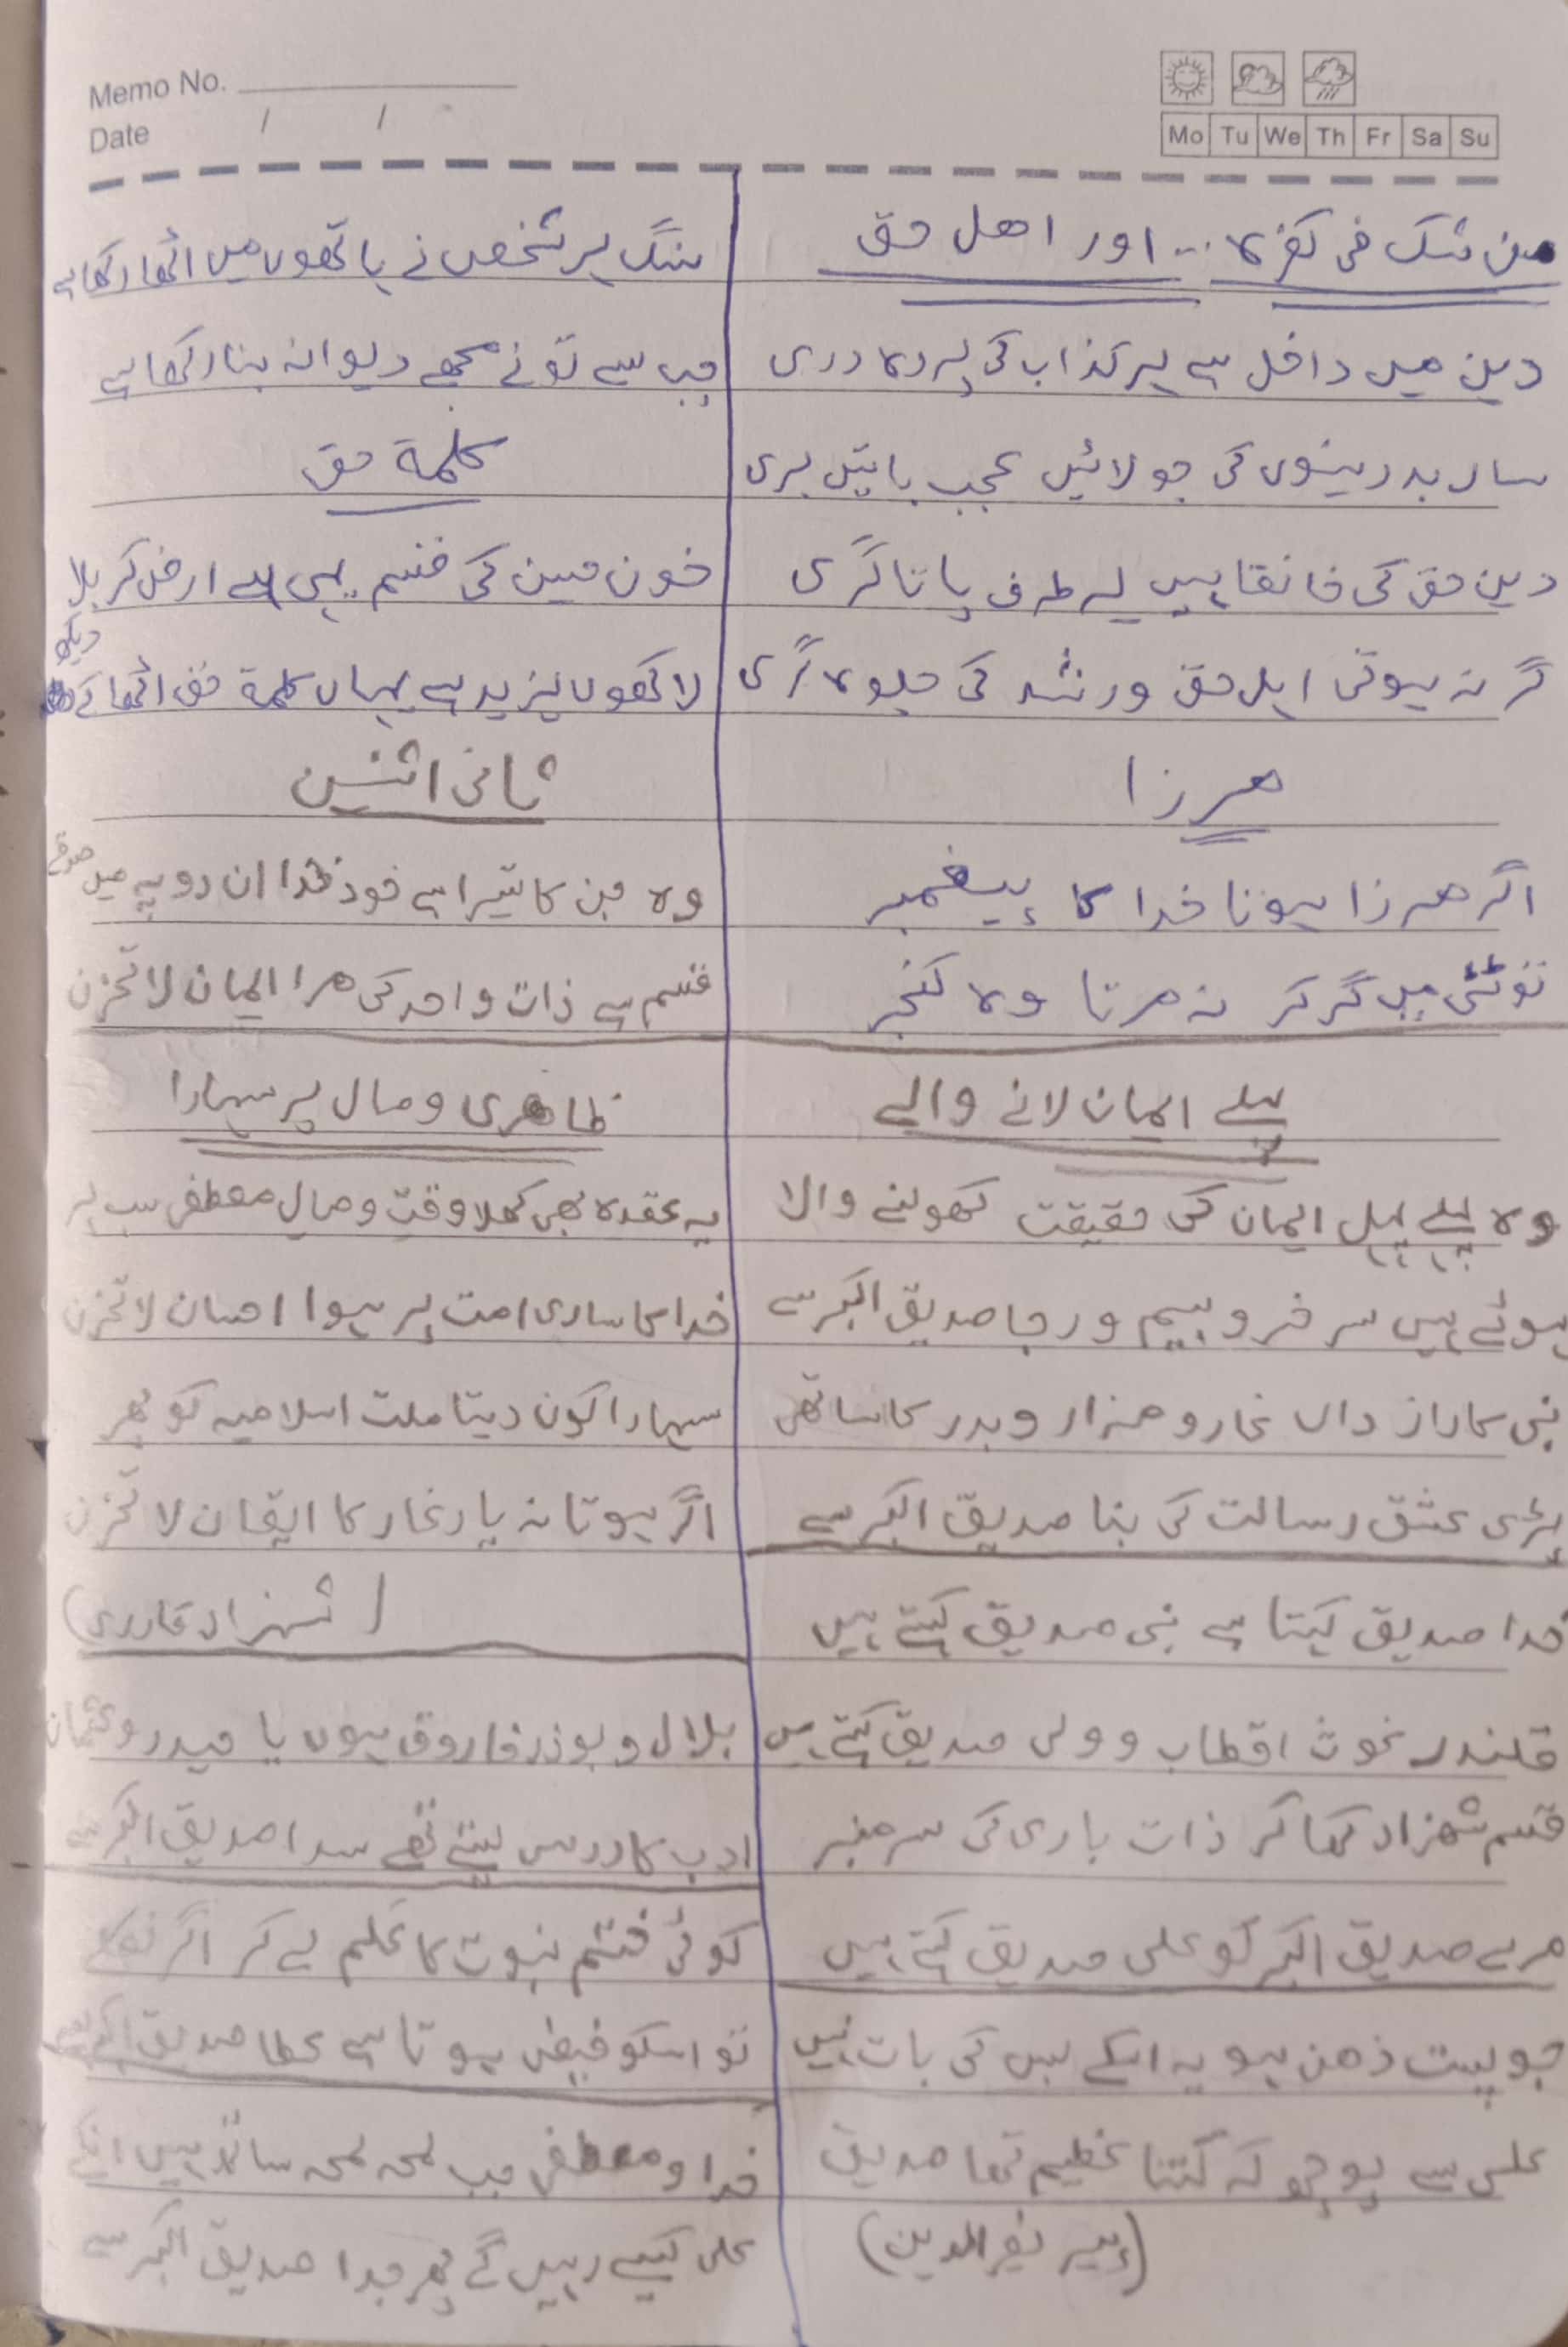 Memo No.
Date / /
Mo Tu We Th Fr Sa Su
من شک فی کفرہ ... اور اھل حق
دین میں داخل ہے ہر کذاب کی پردہ دری
سار بد دینوں کی جو لائیں عجب باتیں بری
دین حق کی خانقاہیں ہر طرف یا تاگری
گر نہ ہوتی اہل حق ورشد کی جلوہ گری
مرزا
اگر مرزا ہوتا خدا کا پیغمبر
تو ٹٹی میں گر کر نہ مرتا وہ کنجر
پہلے ایمان لانے والے
وہ پہلے پہل ایمان کی حقیقت کھولنے والا
ہوئے ہیں سرخرو بیم و رجا صدیق اکبر سے
نبی کا راز داں غار و مزار و بدر کا ساتھی
پڑی عشق رسالت کی بنا صدیق اکبر سے
خدا صدیق کہتا ہے نبی صدیق کہتے ہیں
قلندر غوث اقطاب و ولی صدیق کہتے ہیں
قسم شہزاد کھا کر ذات باری کی سر منبر
مرے صدیق اکبر کو علی صدیق کہتے ہیں
جو پست ذھن ہو یہ اسکے بس کی بات نہیں
علی سے پوچھو کہ کتنا عظیم تھا صدیق
(پیر نصیر الدین)
سنگ ہر شخص نے ہاتھوں میں اٹھا رکھا ہے
جب سے تو نے مجھے دیوانہ بنا رکھا ہے
کلمۃ حق
خون حسین کی قسم یہی ہے ارض کربلا
لاکھوں یزید ہے یہاں کلمۃ حق اٹھا کے دیکھ
ثانی اثنین
وہ جن کا تیرا ہے خود خدا ان دو پہ میں صدقے
قسم ہے ذات واحد کی مرا ایمان لا تحزن
ظاھری وصال پر سہارا
یہ عقدہ بھی کھلا وقت وصال مصطفی سب پر
خدا کا ساری امت پر ہوا احسان لا تحزن
سہارا کون دیتا ملت اسلامیہ کو پھر
اگر ہوتا نہ یار غار کا ایقان لا تحزن
(شہزاد قادری)
بلال و بوذر فاروق ہوں یا حیدر و عثمان
ادب کا درس لیتے تھے سدا صدیق اکبر سے
کوئی ختم نبوت کا علم لے کر اگر نکلے
تو اسکو فیض ہوتا ہے عطا صدیق اکبر سے
خدا و مصطفی جب لمحہ لمحہ ساتھ ہیں انکے
علی کیسے رہیں گے پھر جدا صدیق اکبر سے